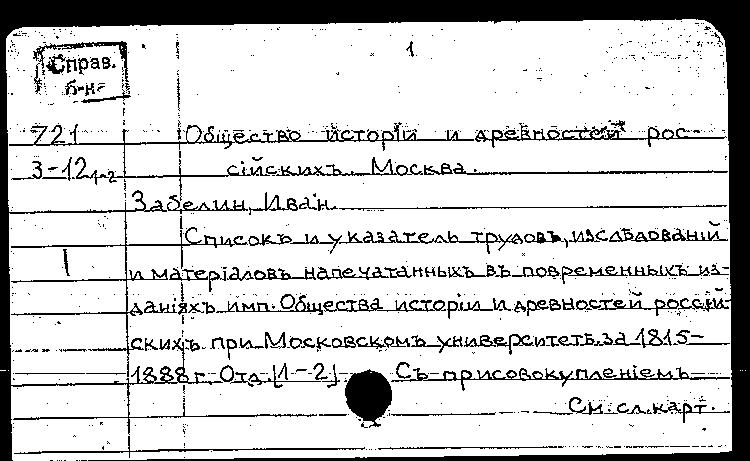 1
Справ.
б-ка
721
З-12 1-2
Общество исторiи и древностей рос-
сiйскихъ. Москва.
Забелин, Иван.
Списокъ и указатель трудовъ, изслѣдованiй
и матерiаловъ напечатанныхъ въ повременныхъ из-
данiяхъ имп. Общества исторiи и древностей россiй-
скихъ при Московскомъ университетѣ за 1815-
1888 г. Отд. [1-2] Съ присовокупленiемъ
См. сл. карт.